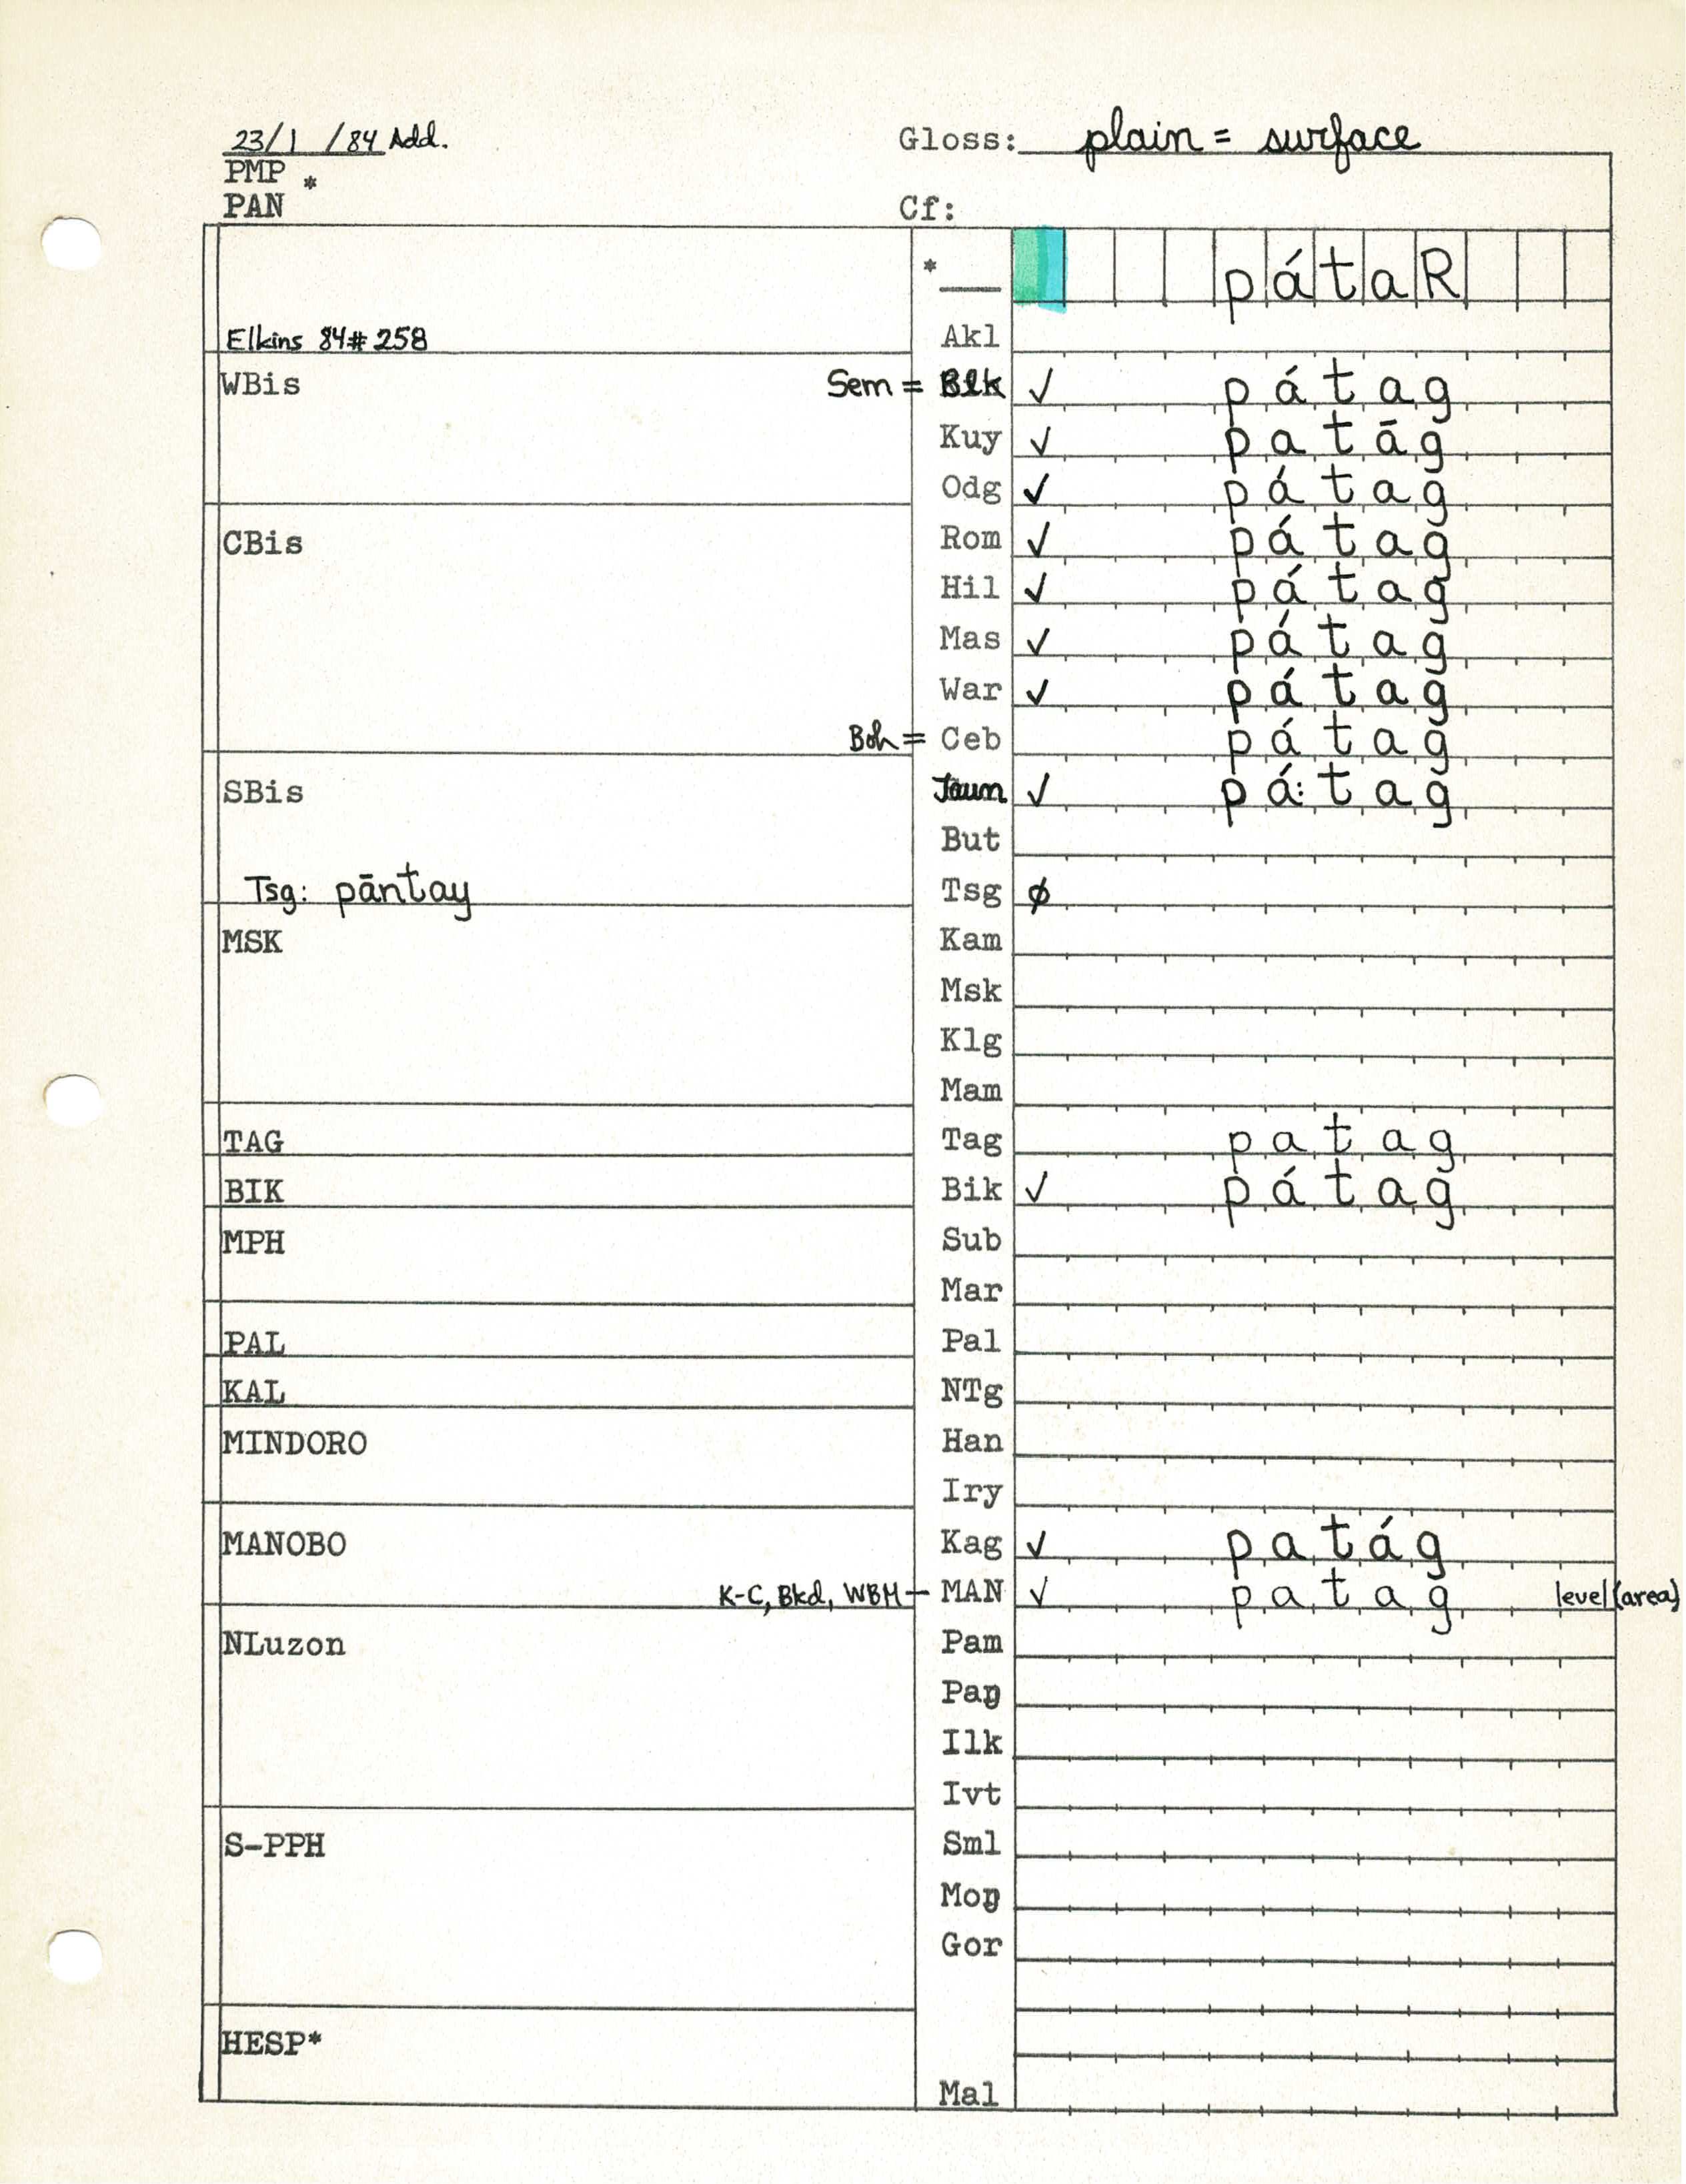 23/1 /84 Add.
Gloss: plain = surface
PMP *
PAN
Cf:
* pátaR
Elkins 84#258
Akl
WBis
Sem = Blk ✓ pátag
Kuy ✓ patāg
Odg ✓ pátag
CBis
Rom ✓ pátag
Hil ✓ pátag
Mas ✓ pátag
War ✓ pátag
Boh = Ceb pátag
SBis
Jaun ✓ pá:tag
But
Tsg: pāntay
Tsg ∅
MSK
Kam
Msk
Klg
Mam
TAG
Tag patag
BIK
Bik ✓ pátag
MPH
Sub
Mar
PAL
Pal
KAL
NTg
MINDORO
Han
Iry
MANOBO
Kag ✓ patág
K-C, Bkd, WBM – MAN ✓ patag level (area)
NLuzon
Pam
Paŋ
Ilk
Ivt
S-PPH
Sml
Moŋ
Gor
HESP*
Mal